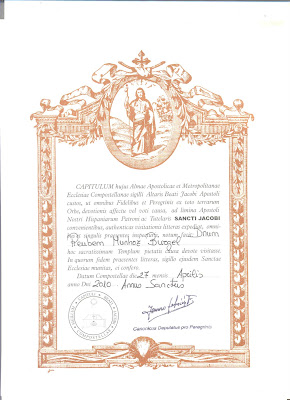 CAPITULUM hujus Almae Apostolicae et Metropolitanae
Ecclesiae Compostellanae sigilli Altaris Beati Jacobi Apostoli
custos, ut omnibus Fidelibus et Peregrinis ex toto terrarum
Orbe, devotionis affectu vel voti causa, ad limina Apostoli
Nostri Hispaniarum Patroni ac Tutelaris SANCTI JACOBI
convenientibus, authenticas visitationis litteras expediat, omni-
bus et singulis praesentes inspecturis, notum facit: Dnum
Munhoz
hoc sacratissimum Templum pietatis causa devote visitasse.
In quorum fidem praesentes litteras, sigillo ejusdem Sanctae
Ecclesiae munitas, ei confero.
Datum Compostellae die 27 mensis Aprilis
anno Dni 2010 Annus Sanctus
Canonicus Deputatus pro Peregrinis